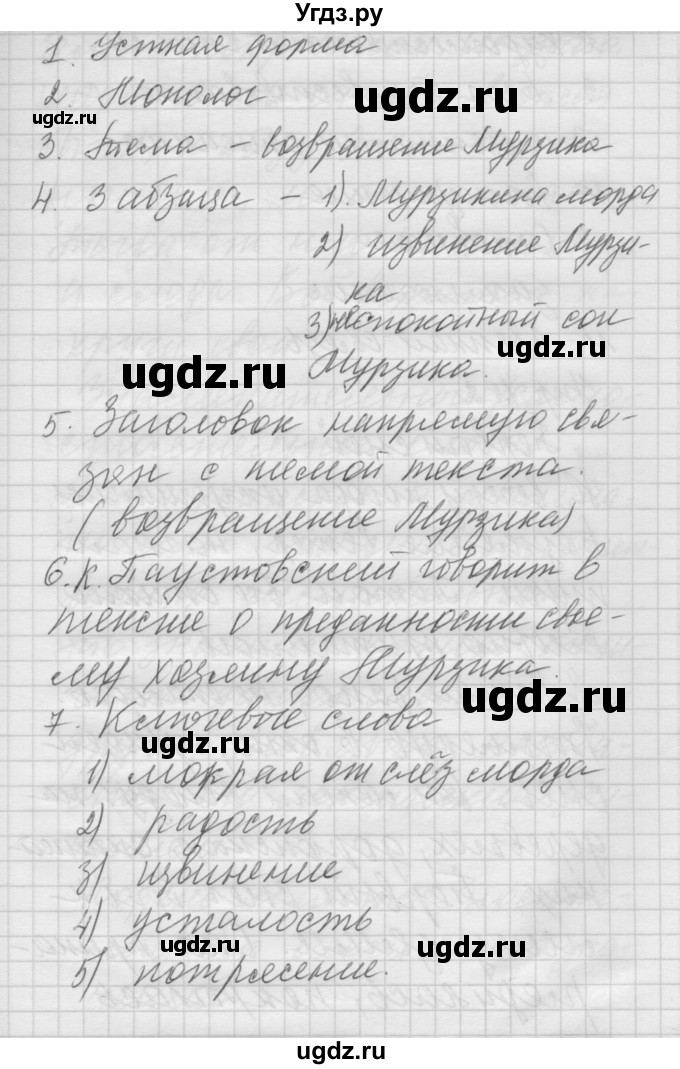 Угдз.ру
1. Устная форма
2. Монолог
ugdz.ru
ugdz.ru
3. Тема – возвращение Мурзика
4. 3 абзаца – 1). Мурзикина морда
2) извинение Мурзи-
ка
3) неспокойный сон
ugdz.ru
ugdz.ru
Мурзика.
5. Заголовок напрямую свя-
зан с темой текста.
(возвращение Мурзика)
6. К. Паустовский говорит в
тексте о преданности свое-
му хозяину Мурзика.
ugdz.ru
7. Ключевые слова
ugdz.ru
1) мокрая от слёз морда
2) радость
3) извинение
4) усталость
ugdz.ru
ugdz.ru
5) потрясение.
ugdz.ru